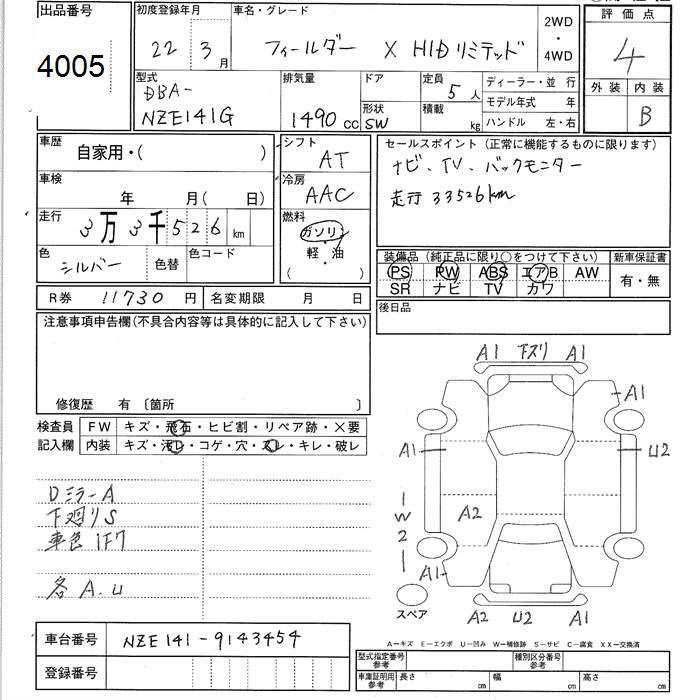 出品番号
4005
初度登録年月
22 3 月
車名・グレード
フィールダー X HIDリミテッド
2WD
・
4WD
評価点
4
外装 内装
B
型式
DBA-
NZE141G
排気量
1490 cc
ドア
形状
SW
定員
5 人
積載
kg
ディーラー・並行
モデル年式 年
ハンドル 左・右
車歴
自家用・( )
車検
年 月( 日)
走行
3 万 3 千 5 2 6 km
色
シルバー
色替
色コード
シフト
AT
冷房
AAC
燃料
ガソリン
・
軽・油
( )
セールスポイント(正常に機能するものに限ります)
ナビ、TV、バックモニター
走行 33526km
装備品(純正品に限り○をつけて下さい)
新車保証書
PS PW ABS エアB AW
SR ナビ TV カワ
有・無
R券 11730 円
名変期限 月 日
後日品
注意事項申告欄(不具合内容等は具体的に記入して下さい)
修復歴 有 〔箇所 〕
検査員
記入欄
FW キズ・飛石・ヒビ割・リペア跡・X要
内装 キズ・汚レ・コゲ・穴・スレ・キレ・破レ
Dミラ-A
下廻りS
車色 1F7
各 A.U
A1 下スリ A1
A1
A1
U2
A2
W
2
A1
スペア
A2 U2 A1
A―キズ E―エクボ U―凹み W―補修跡 S―サビ C―腐食 XX―交換済
車台番号
NZE141-9143454
登録番号
型式指定番号
参考
種別区分番号
参考
車庫証明用
参考
長さ cm 幅 cm 高さ cm